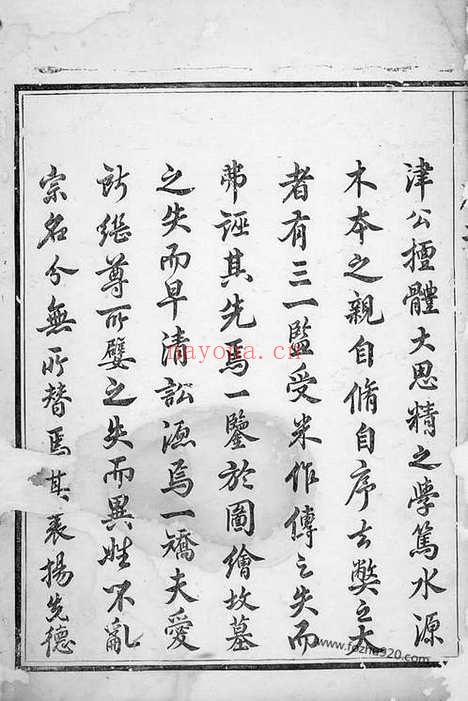 津公擅體大思精之學篤水源
木本之親自脩自序云弊之大
者有三一監受米作傳之失而
弗誣其先焉一鑒於圖繪故墓
之失而早清訟源焉一矯夫愛
所繼尊所嬖之失而異姓不亂
宗名分無所替焉其表揚先德
nayoua.cn
www.fozhu920.com